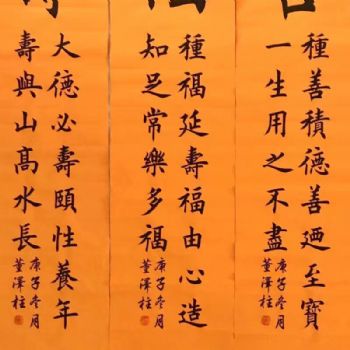 種善積德善廼至寶
一生用之不盡
庚子冬月
董澤柱
種福延壽福由心造
知足常樂多福
庚子冬月
董澤柱
大德必壽頤性養年
壽與山高水長
庚子冬月
董澤柱